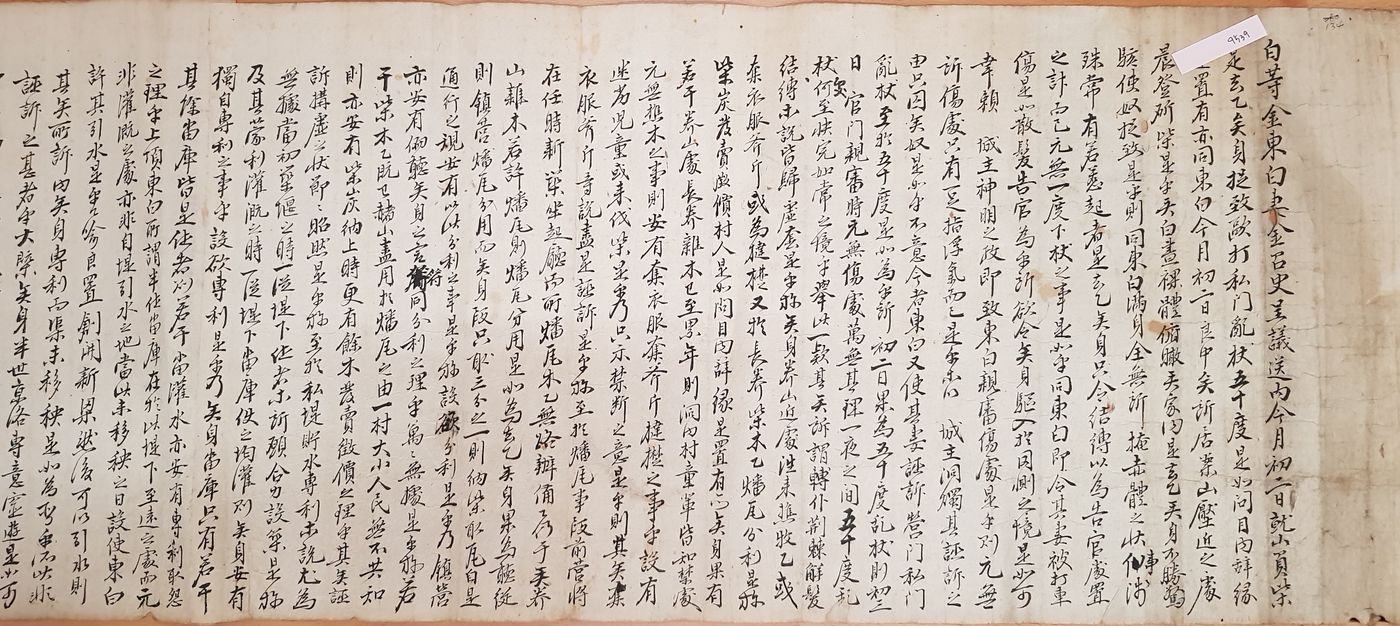 白等金東白妻金召史呈議送內今月初二日就山員柴
是去乙矣身捉致敺打私門亂杖五十度是如問目內辞緣
置有亦同東白今月初二日良中矣訴居柴山壓近之處
晨登斫柴是乎矣白晝裸體俯瞰矣家內是去乙矣身不勝驚
駭使奴捉致是乎則同東白滿身全無所掩赤體之狀事涉
殊常有若惹起者是去乙矣身只令結縛以爲告官處置
之計而已元無一度下杖之事是如乎同東白即令其妻被打重
傷是如散髮告官爲乎所欲令矣身驅入於罔測之境是如可
幸賴城主神明之政即致東白親審傷處是乎則元無
訴傷處只有一足指浮氣而已是乎所城主洞燭其誣訴之
由只囚矣奴是如乎不意今者東白又使其妻誣訴營門私門
亂杖至於五十度是如爲乎所初二日果爲五十度亂杖則初三
日官門親審時元無傷處萬無其理一夜之間五十度亂
杖瘡何至快完如常之境乎擧此一款其矣所謂轉仆荊棘解髮
結縛亦說皆歸虛套是乎旀矣身養山近處進來樵牧乙或
奪衣服斧斤或爲撻楚又於長養柴木乙燔瓦分利是旀
柴炭發賣徵價村人是如問目內辞緣是置有亦矣身果有
若干養山處長養雜木已至累年則洞內村童輩皆知禁處
元無樵木之事則安有奪衣服奪斧斤撻楚之事乎設有
迷劣兒童或來伐柴是乎乃只示禁斷之意是乎則其矣奪
衣服斧斤等說盡是誣訴是乎旀至於燔瓦事段前營將
在任時新築坐起廳而所燔瓦木乙無路辦備乃于矣養
山雜木若許燔瓦則燔瓦分用是如爲去乙矣身果爲聽從
則鎮營燔瓦分用而矣身段只取三分之一則納柴取瓦自是
通行之規安有以此分利之事是乎旀設欲分利是乎乃鎮營
亦安有俯聽矣身之言符同分利之理乎萬萬無據是乎旀若
干柴木乙既已赭山盡用於燔瓦之由一村大小人民無不共知
則亦安有柴炭納上時更有餘木發賣徵價之理乎其矣誣
訴搆虛之狀節節昭然是乎旀至於私堤貯水專利亦說尤爲
無據當初築堰之時一從堤下住者訴願合力設築是乎旀
及其蒙利灌漑之時一從堤下當庫使之均灌則矣身安有
獨自專利之事乎設欲專利是乎乃矣身當庫只有若干
其餘當庫皆是住者則若干當灌水亦安有專利取怨
之理乎上項東白所謂半住當庫在於以堤下至遠之處而元
非灌漑之處亦非自堤引水之地當此未移秧之日設使東白
許其引水是乎喻自置創開新渠然後可以引水則
其矣所訴內矣身專利而渠未移秧是如爲乎不以非
誣訴之甚者乎大槩矣身半世京洛專意虛遊是如可
9539
134